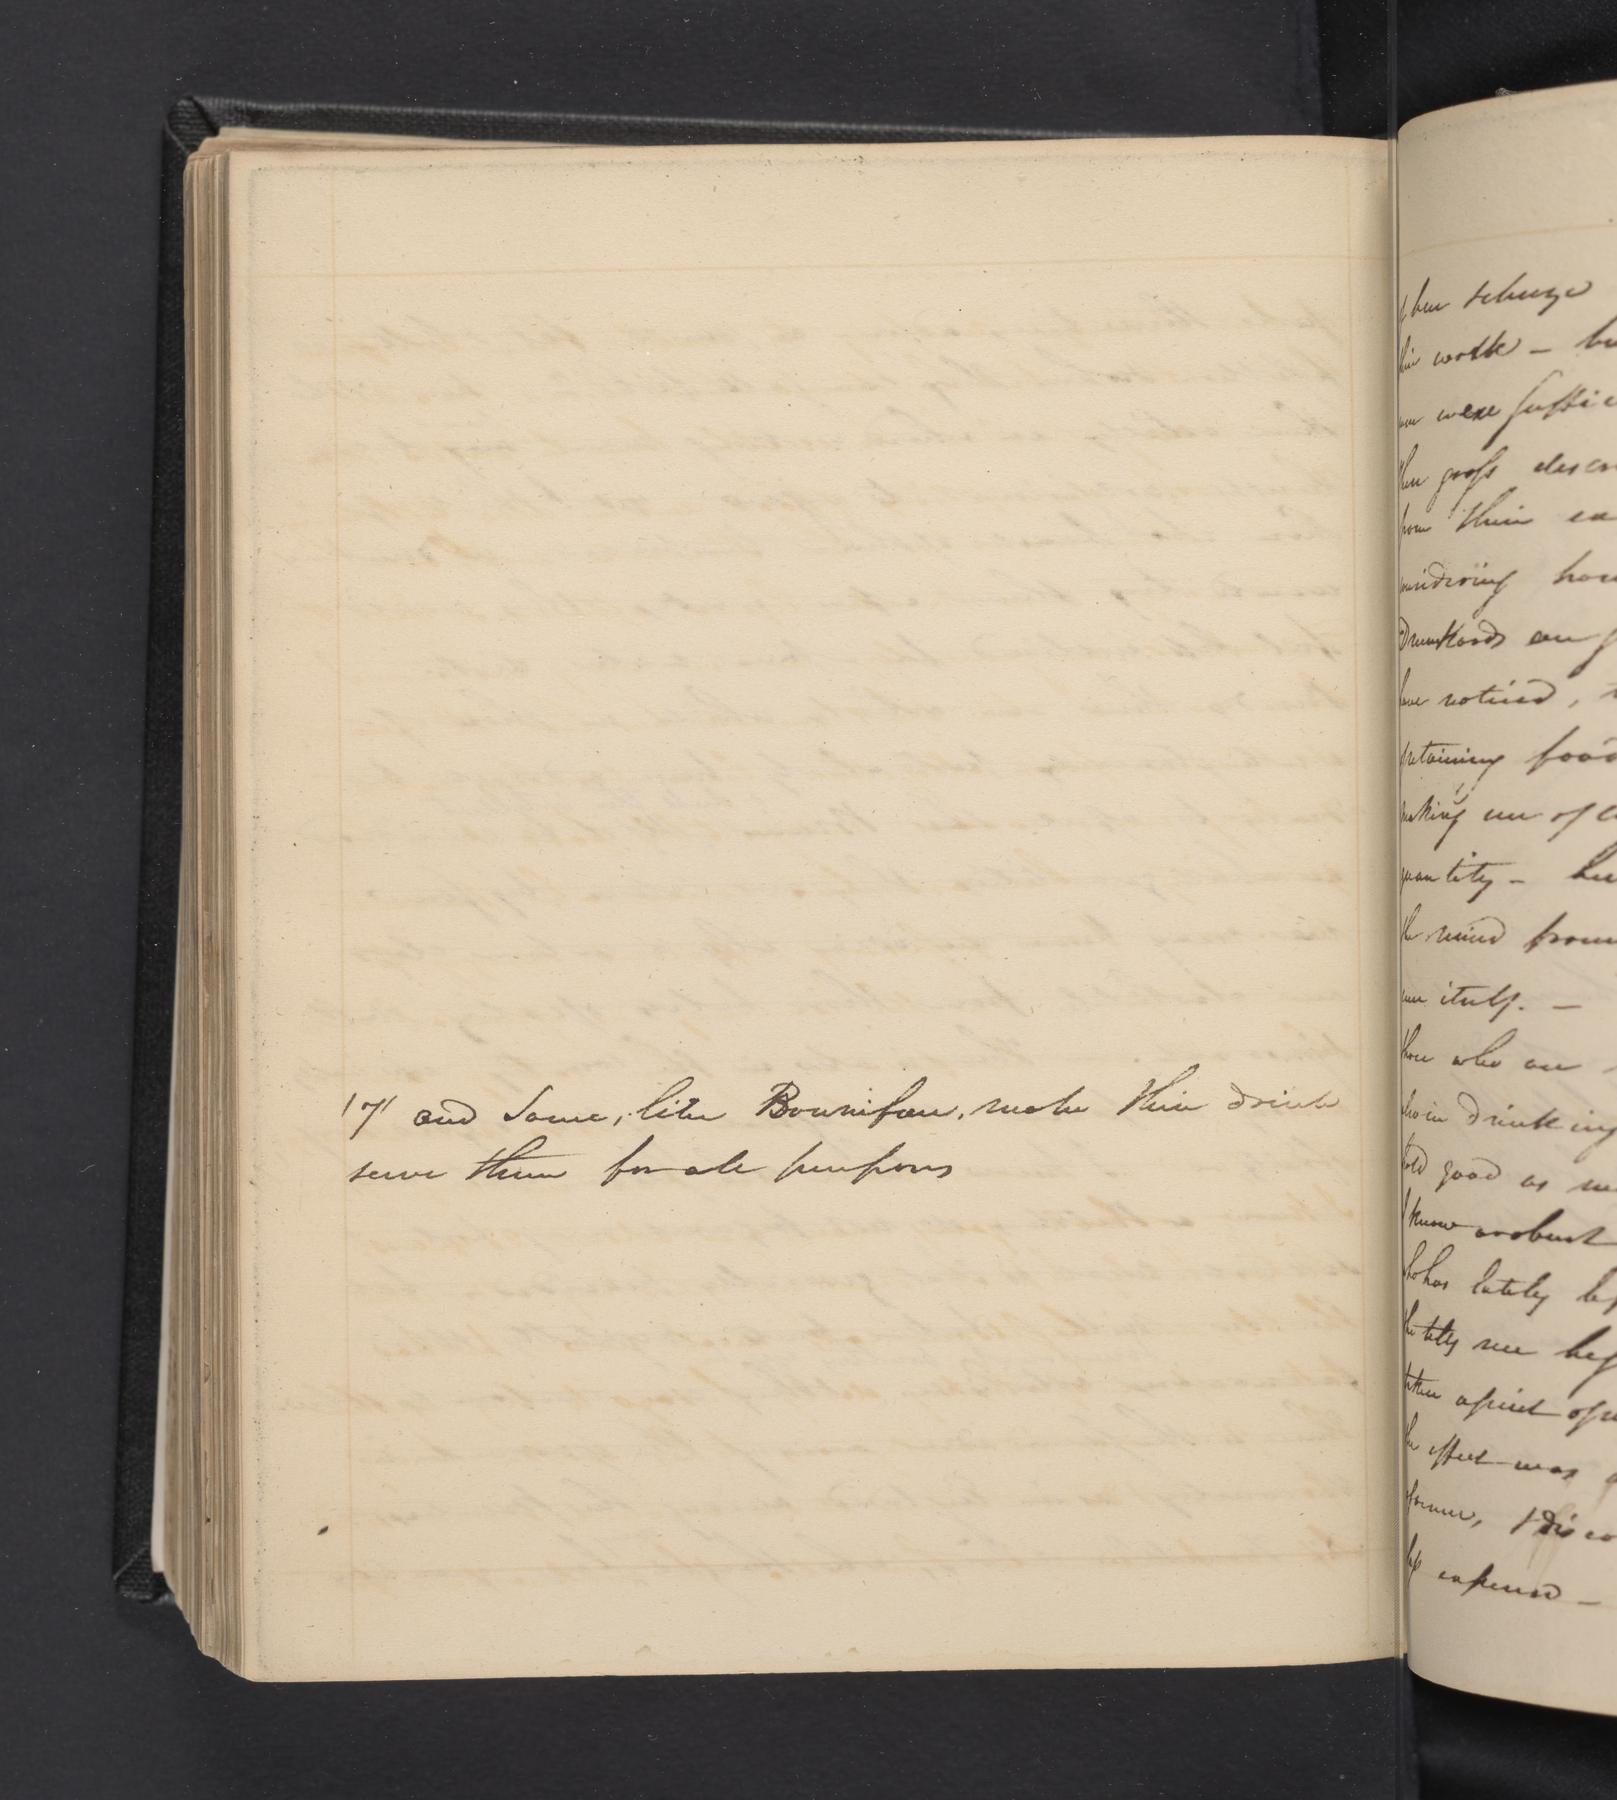 '7' and Some, like Bounifau, make their drink
serve them for all purposes
of ben schuyo
their worth – bu
were suffici
then gross descr
from their ea
considering how
Drunkards are g
have noticed, t
retaining food
making use of a
quantity – hu
the mind from
itself. –
those who are
their drinking
hold good as me
I know a robust
who has lately bef
he tells me he g
taken a pint of sp
the effect was
former, & disco
expense –